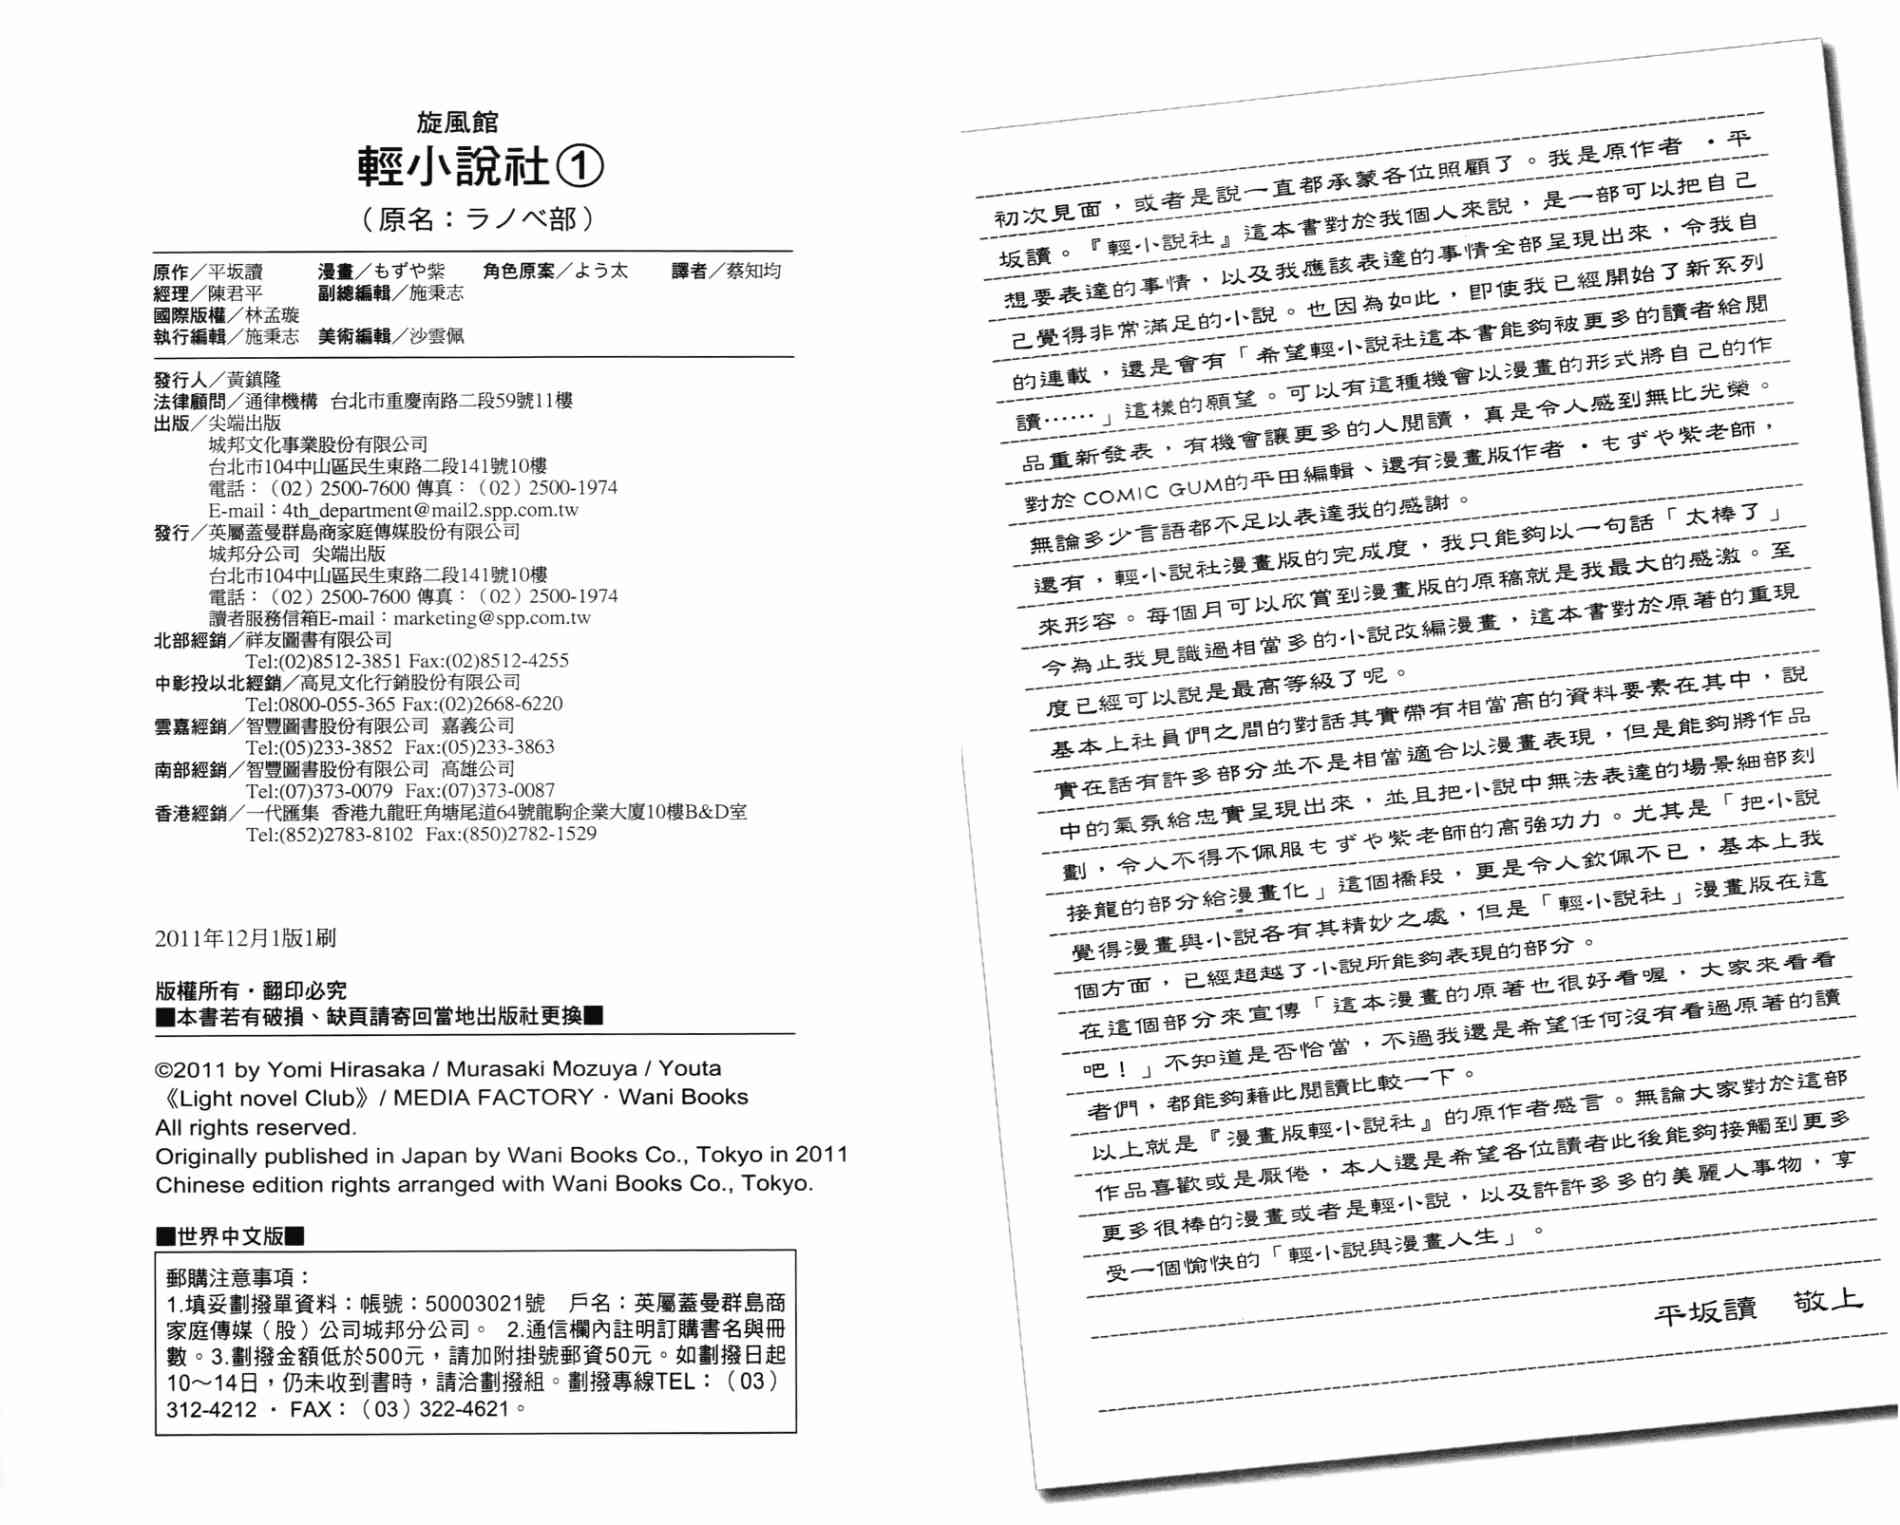 旋風館
輕小說社①
（原名：ラノベ部）
原作／平坂讀　漫畫／もずや紫　角色原案／よう太　譯者／蔡知均
經理／陳君平　副總編輯／施秉志
國際版權／林孟璇
執行編輯／施秉志　美術編輯／沙雲佩
發行人／黃鎮隆
法律顧問／通律機構　台北市重慶南路二段59號11樓
出版／尖端出版
城邦文化事業股份有限公司
台北市104中山區民生東路二段141號10樓
電話：（02）2500-7600 傳真：（02）2500-1974
E-mail：4th_department@mail2.spp.com.tw
發行／英屬蓋曼群島商家庭傳媒股份有限公司
城邦分公司　尖端出版
台北市104中山區民生東路二段141號10樓
電話：（02）2500-7600 傳真：（02）2500-1974
讀者服務信箱E-mail：marketing@spp.com.tw
北部經銷／祥友圖書有限公司
Tel:(02)8512-3851 Fax:(02)8512-4255
中彰投以北經銷／高見文化行銷股份有限公司
Tel:0800-055-365 Fax:(02)2668-6220
雲嘉經銷／智豐圖書股份有限公司　嘉義公司
Tel:(05)233-3852 Fax:(05)233-3863
南部經銷／智豐圖書股份有限公司　高雄公司
Tel:(07)373-0079 Fax:(07)373-0087
香港經銷／一代匯集　香港九龍旺角塘尾道64號龍駒企業大廈10樓B&D室
Tel:(852)2783-8102 Fax:(850)2782-1529
2011年12月1版1刷
版權所有・翻印必究
■本書若有破損、缺頁請寄回當地出版社更換■
©2011 by Yomi Hirasaka / Murasaki Mozuya / Youta
《Light novel Club》 / MEDIA FACTORY・Wani Books
All rights reserved.
Originally published in Japan by Wani Books Co., Tokyo in 2011
Chinese edition rights arranged with Wani Books Co., Tokyo.
■世界中文版■
郵購注意事項：
1.填妥劃撥單資料：帳號：50003021號　戶名：英屬蓋曼群島商
家庭傳媒（股）公司城邦分公司。 2.通信欄內註明訂購書名與冊
數。3.劃撥金額低於500元，請加附掛號郵資50元。如劃撥日起
10～14日，仍未收到書時，請洽劃撥組。劃撥專線TEL：（03）
312-4212 ・ FAX：（03）322-4621。
初次見面，或者是說一直都承蒙各位照顧了。我是原作者・平
坂讀。『輕小說社』這本書對於我個人來說，是一部可以把自己
想要表達的事情，以及我應該表達的事情全部呈現出來，令我自
己覺得非常滿足的小說。也因為如此，即使我已經開始了新系列
的連載，還是會有「希望輕小說社這本書能夠被更多的讀者給閱
讀……」這樣的願望。可以有這種機會以漫畫的形式將自己的作
品重新發表，有機會讓更多的人閱讀，真是令人感到無比光榮。
對於COMIC GUM的平田編輯、還有漫畫版作者・もずや紫老師，
無論多少言語都不足以表達我的感謝。
還有，輕小說社漫畫版的完成度，我只能夠以一句話「太棒了」
來形容。每個月可以欣賞到漫畫版的原稿就是我最大的感激。至
今為止我見識過相當多的小說改編漫畫，這本書對於原著的重現
度已經可以說是最高等級了呢。
基本上社員們之間的對話其實帶有相當高的資料要素在其中，說
實在話有許多部分並不是相當適合以漫畫表現，但是能夠將作品
中的氣氛給忠實呈現出來，並且把小說中無法表達的場景細部刻
劃，令人不得不佩服もずや紫老師的高強功力。尤其是「把小說
接龍的部分給漫畫化」這個橋段，更是令人欽佩不已，基本上我
覺得漫畫與小說各有其精妙之處，但是「輕小說社」漫畫版在這
個方面，已經超越了小說所能夠表現的部分。
在這個部分來宣傳「這本漫畫的原著也很好看喔，大家來看看
吧！」不知道是否恰當，不過我還是希望任何沒有看過原著的讀
者們，都能夠藉此閱讀比較一下。
以上就是『漫畫版輕小說社』的原作者感言。無論大家對於這部
作品喜歡或是厭倦，本人還是希望各位讀者此後能夠接觸到更多
更多很棒的漫畫或者是輕小說，以及許許多多的美麗人事物，享
受一個愉快的「輕小說與漫畫人生」。
平坂讀　敬上